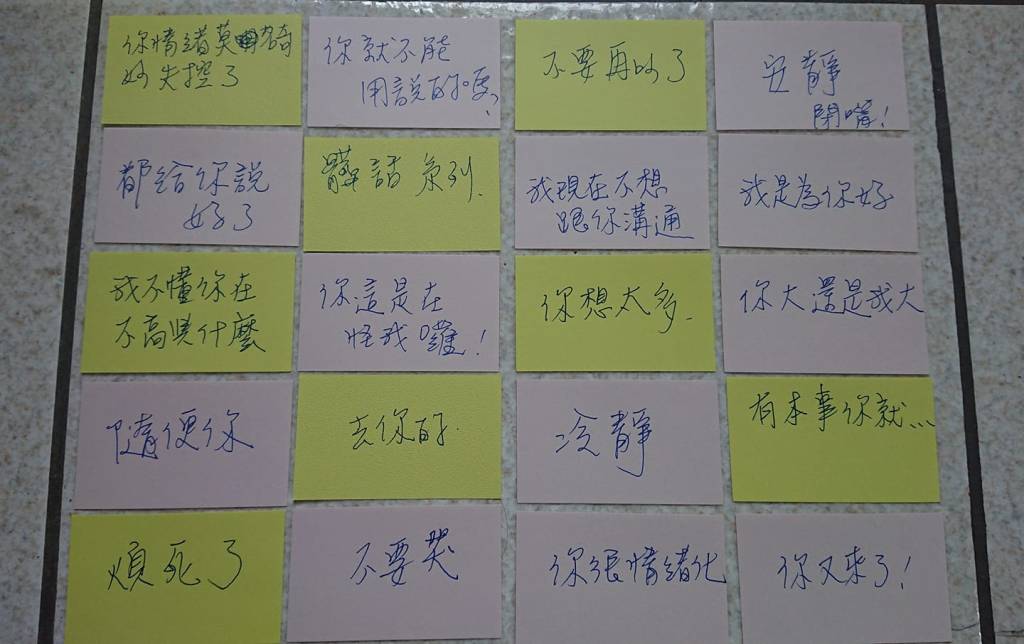 你情緒莫名奇
妙失控了
你就不能
用說的嗎
不要再吵了
安靜
閉嘴!
都給你說
好了
髒話系列.
我現在不想
跟你溝通
我是為你好
我不懂你在
不高興什麼
你這是在
怪我囉!
你想太多.
你大還是我大
隨便你
去你的.
冷靜
有本事你就...
煩死了
不要哭
你很情緒化
你又來了!